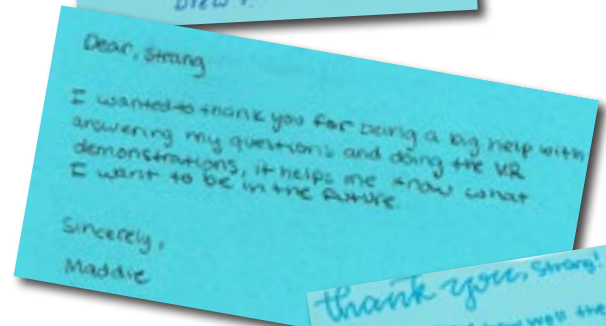 Drew P.
Dear, Strang
I wanted to thank you for being a big help with
answering my questions and doing the VR
demonstrations, it helps me know what
I want to be in the future.
Sincerely,
Maddie
thank you, Strang!
well the